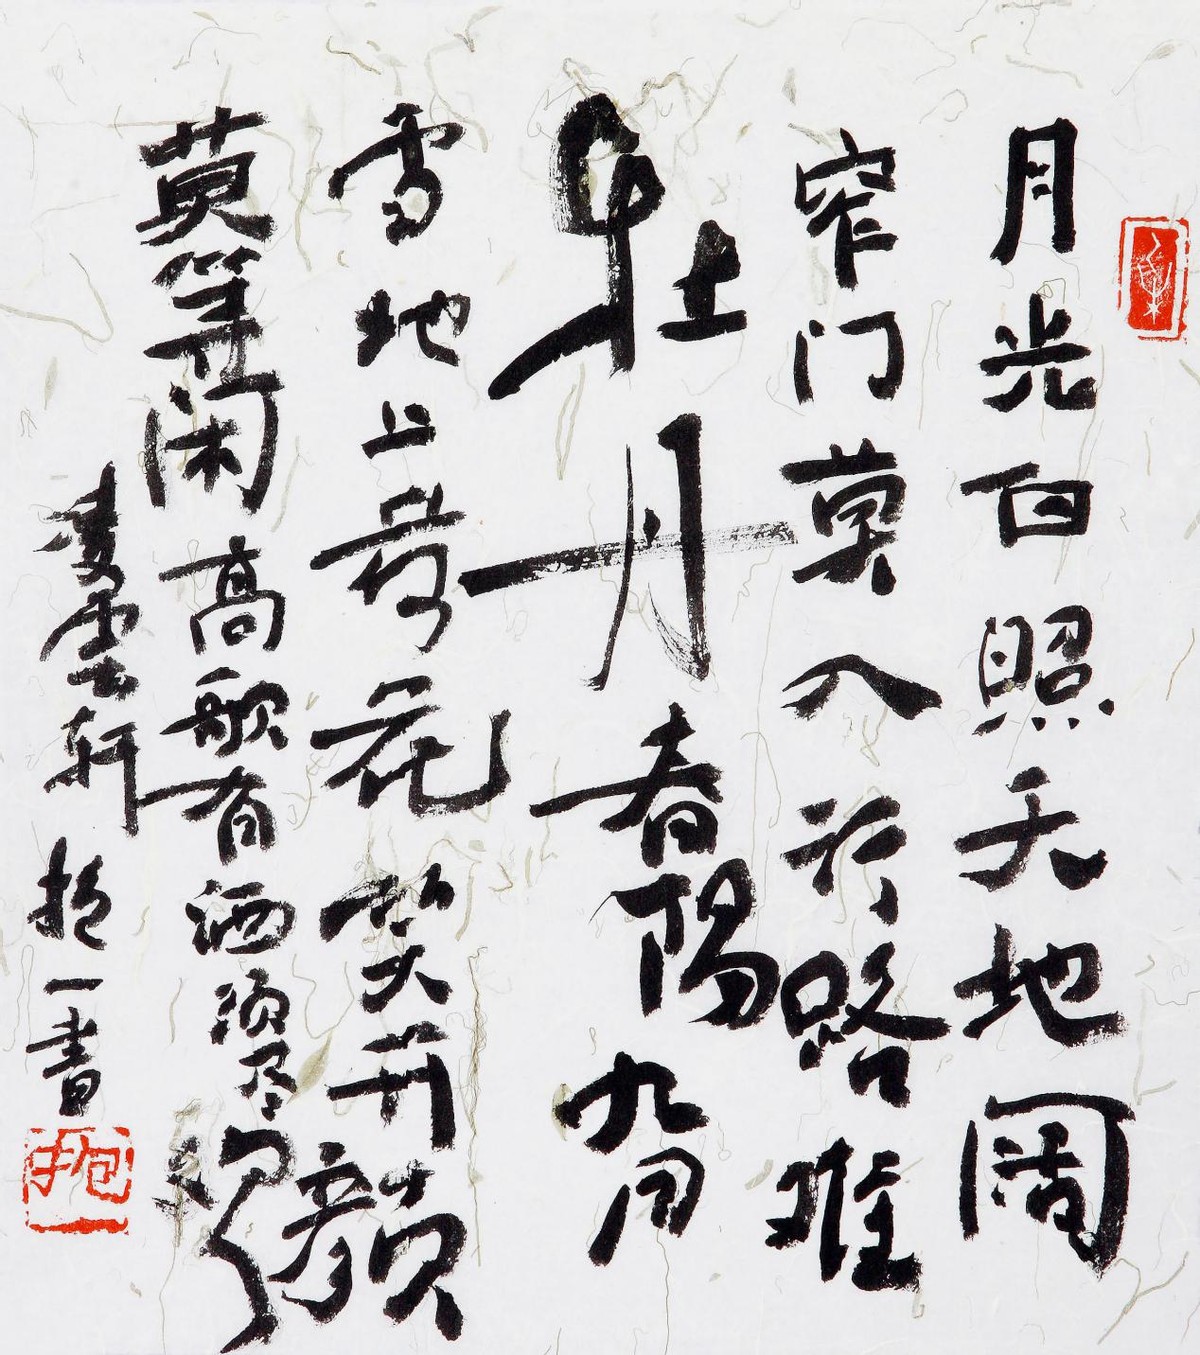 月光白照天地阔
窄门莫入行路难
牡丹春阳九
雪地上荷花笑开颜
莫等闲高歌有酒须尽欢
凌雲軒 抱一書
抱一